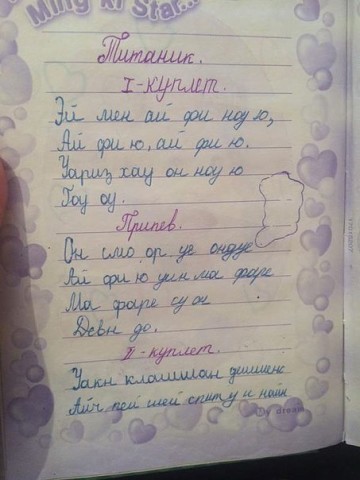 Ming ki Star...
Титаник.
I-куплет.
Эй мен ай фи ноу ю,
Ай фи ю, ай фи ю.
Уариз хау он ноу ю
Гоу оу.
Припев.
Он смо ор уе ондуе
Ай фи ю уин ма фаре
Ма фаре су он
Деви до.
II-куплет.
клашилан
Айч пей шей спит у и найн
My dream